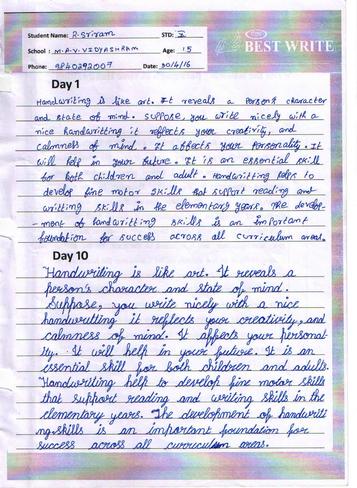 Student Name: R. Sriram STD: X
School: M.A.V. VIDYASHRAM Age: 15
Phone: 9840292007 Date: 30/4/16
BEST WRITE
Day 1
Handwriting is like art. It reveals a person's character
and state of mind. Suppose, you write nicely with a
nice handwritting it reflects your creativity, and
calmness of mind. It affects your personality. It
will help in your future. It is an essential skill
for both children and adult. Handwritting helps to
develop fine motor skills that support reading and
writting skills in the elementary years. The develop-
-ment of handwritting skills is an important
foundation for success across all curriculum areas.
Day 10
Handwriting is like art. It reveals a
person's character and state of mind.
Suppose, you write nicely with a nice
handwritting it reflects your creativity, and
calmness of mind. It affects your personat
ty. It will help in your future. It is an
essential skill for both children and adults.
Handwriting help to develop fine motor skills
that support reading and writing skills in the
elementary years. The development of handwriti
ng skills is an important foundation for
success across all curriculum areas.